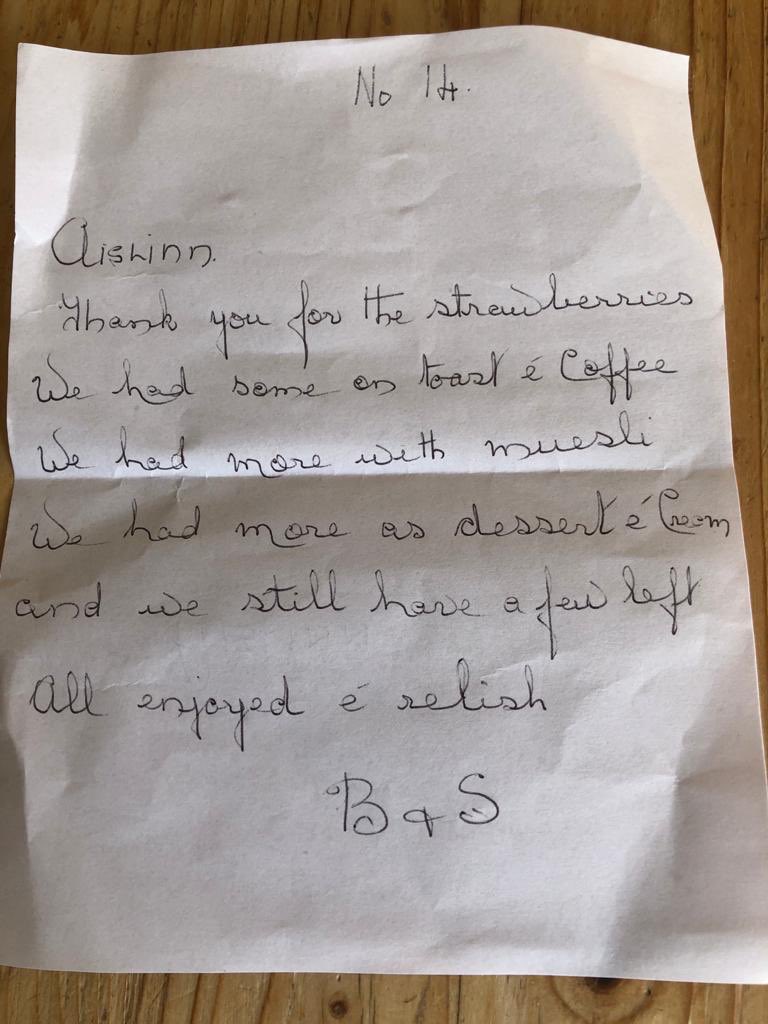 No 14.
Aislinn.
Thank you for the strawberries
We had some on toast é Coffee
We had more with muesli
We had more as dessert é Cream
and we still have a few left
All enjoyed é relish
B & S